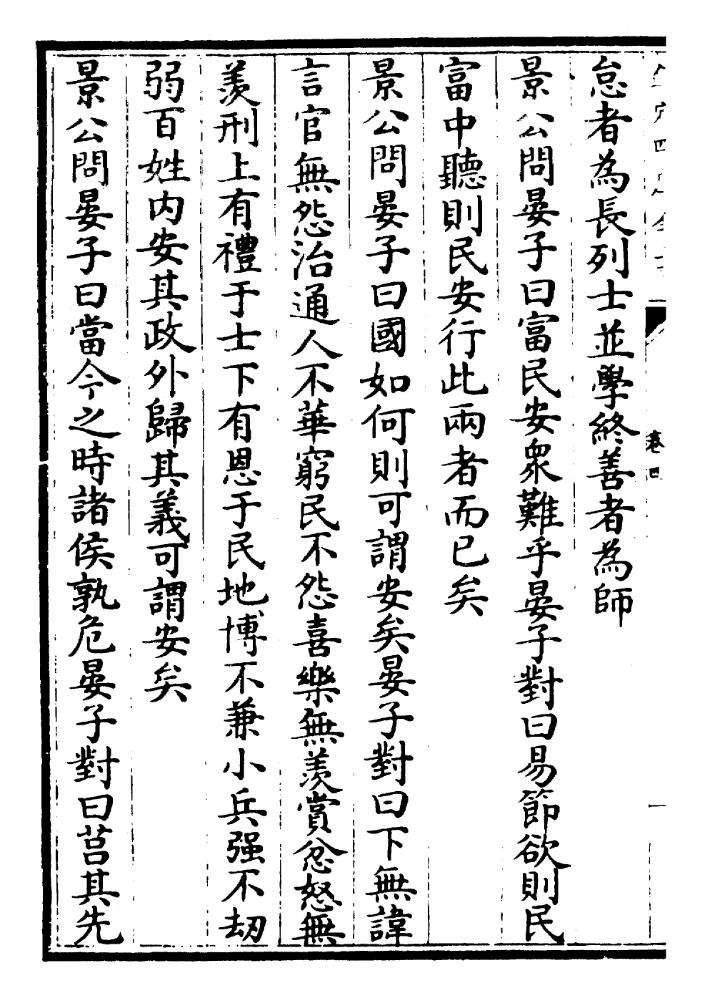 怠者為長列士並學終善者為師
景公問晏子曰富民安衆難乎晏子對曰易節欲則民
富中聽則民安行此兩者而已矣
景公問晏子曰國如何則可謂安矣晏子對曰下無諱
言官無怨治通人不華窮民不怨喜樂無羨賞忿怒無
羨刑上有禮于士下有恩于民地博不兼小兵强不刧
弱百姓内安其政外歸其義可謂安矣
景公問晏子曰當今之時諸侯孰危晏子對曰莒其先